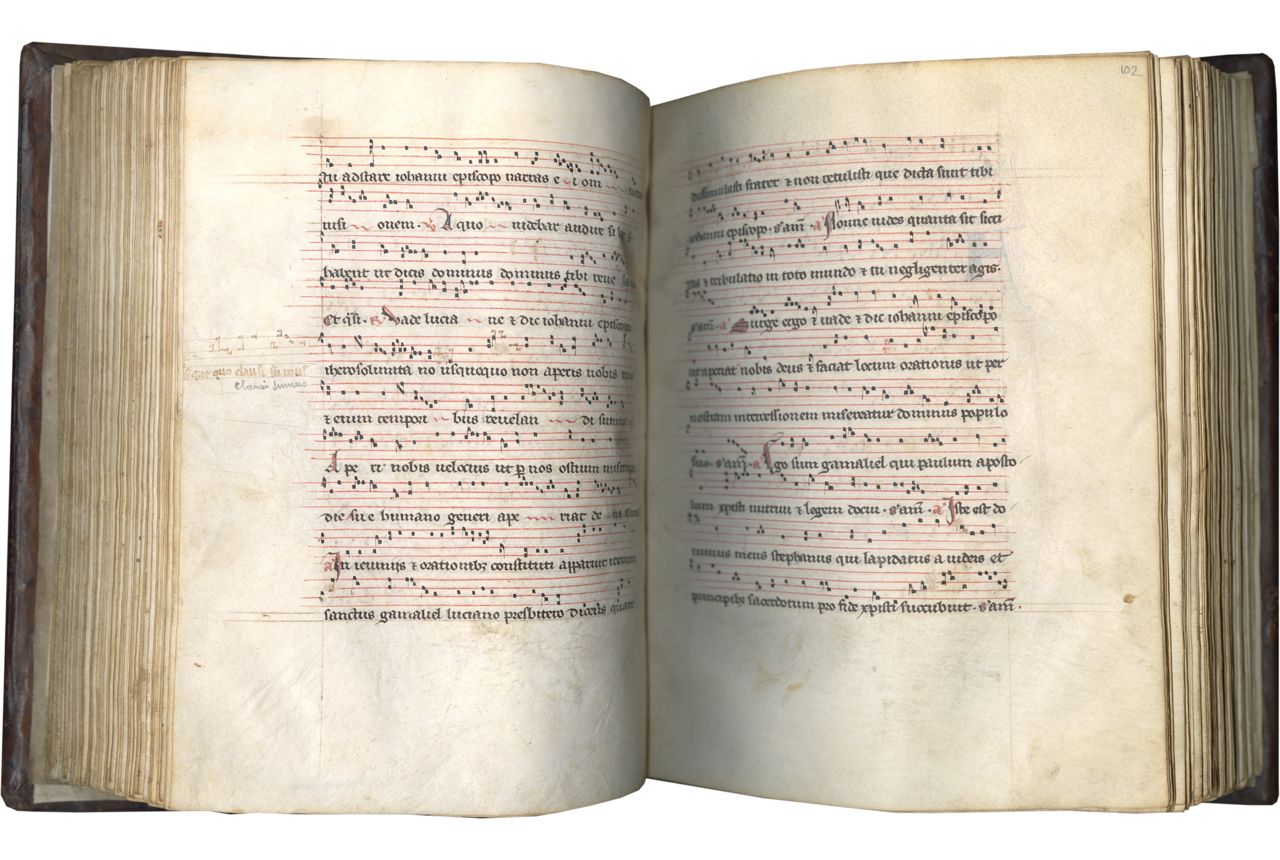 tu adstare iohanni episcopo narras e i om
uisi onem. A quo uidebar audire si
habent ut dicis dominus dominus tibi reue
Et qsi. Vade lucia ne & dic iohanni episcopo
iherosolimita no usquequo non aperis nobis
& enim tempori bus reuelan di sumus
A pe ri nobis uelocius ut p nos ostium
die sue humano generi ape riat
a In ieiunijs & orationibz constituti apparuit iterum
sanctus gamaliel luciano presbitero dicens quare
quo clausi sumus
clausi sumus
102
dissimulasti frater & non retulisti que dicta sunt tibi
iohanni episcopo. s'am. a Nonne uides quanta sit sicci
tas & tribulatio in toto mundo & tu negligenter agis.
s'am. a Surge ergo & uade & dic iohanni episcopo
ut aperiat nobis deus & faciat locum orationis ut per
nostram intercessionem misereatur dominus populo
suo. s'am. a Ego sum gamaliel qui paulum aposto
lum xpisti nutriui & legem docui. s'am. a Iste est do
minus meus stephanus qui lapidatus a iudeis et
principibz sacerdotum pro fide xpisti succubuit. s'am.